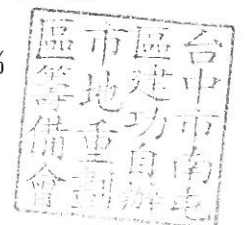 台中市南屯
區建功自辦
市地重劃
區籌備會
%